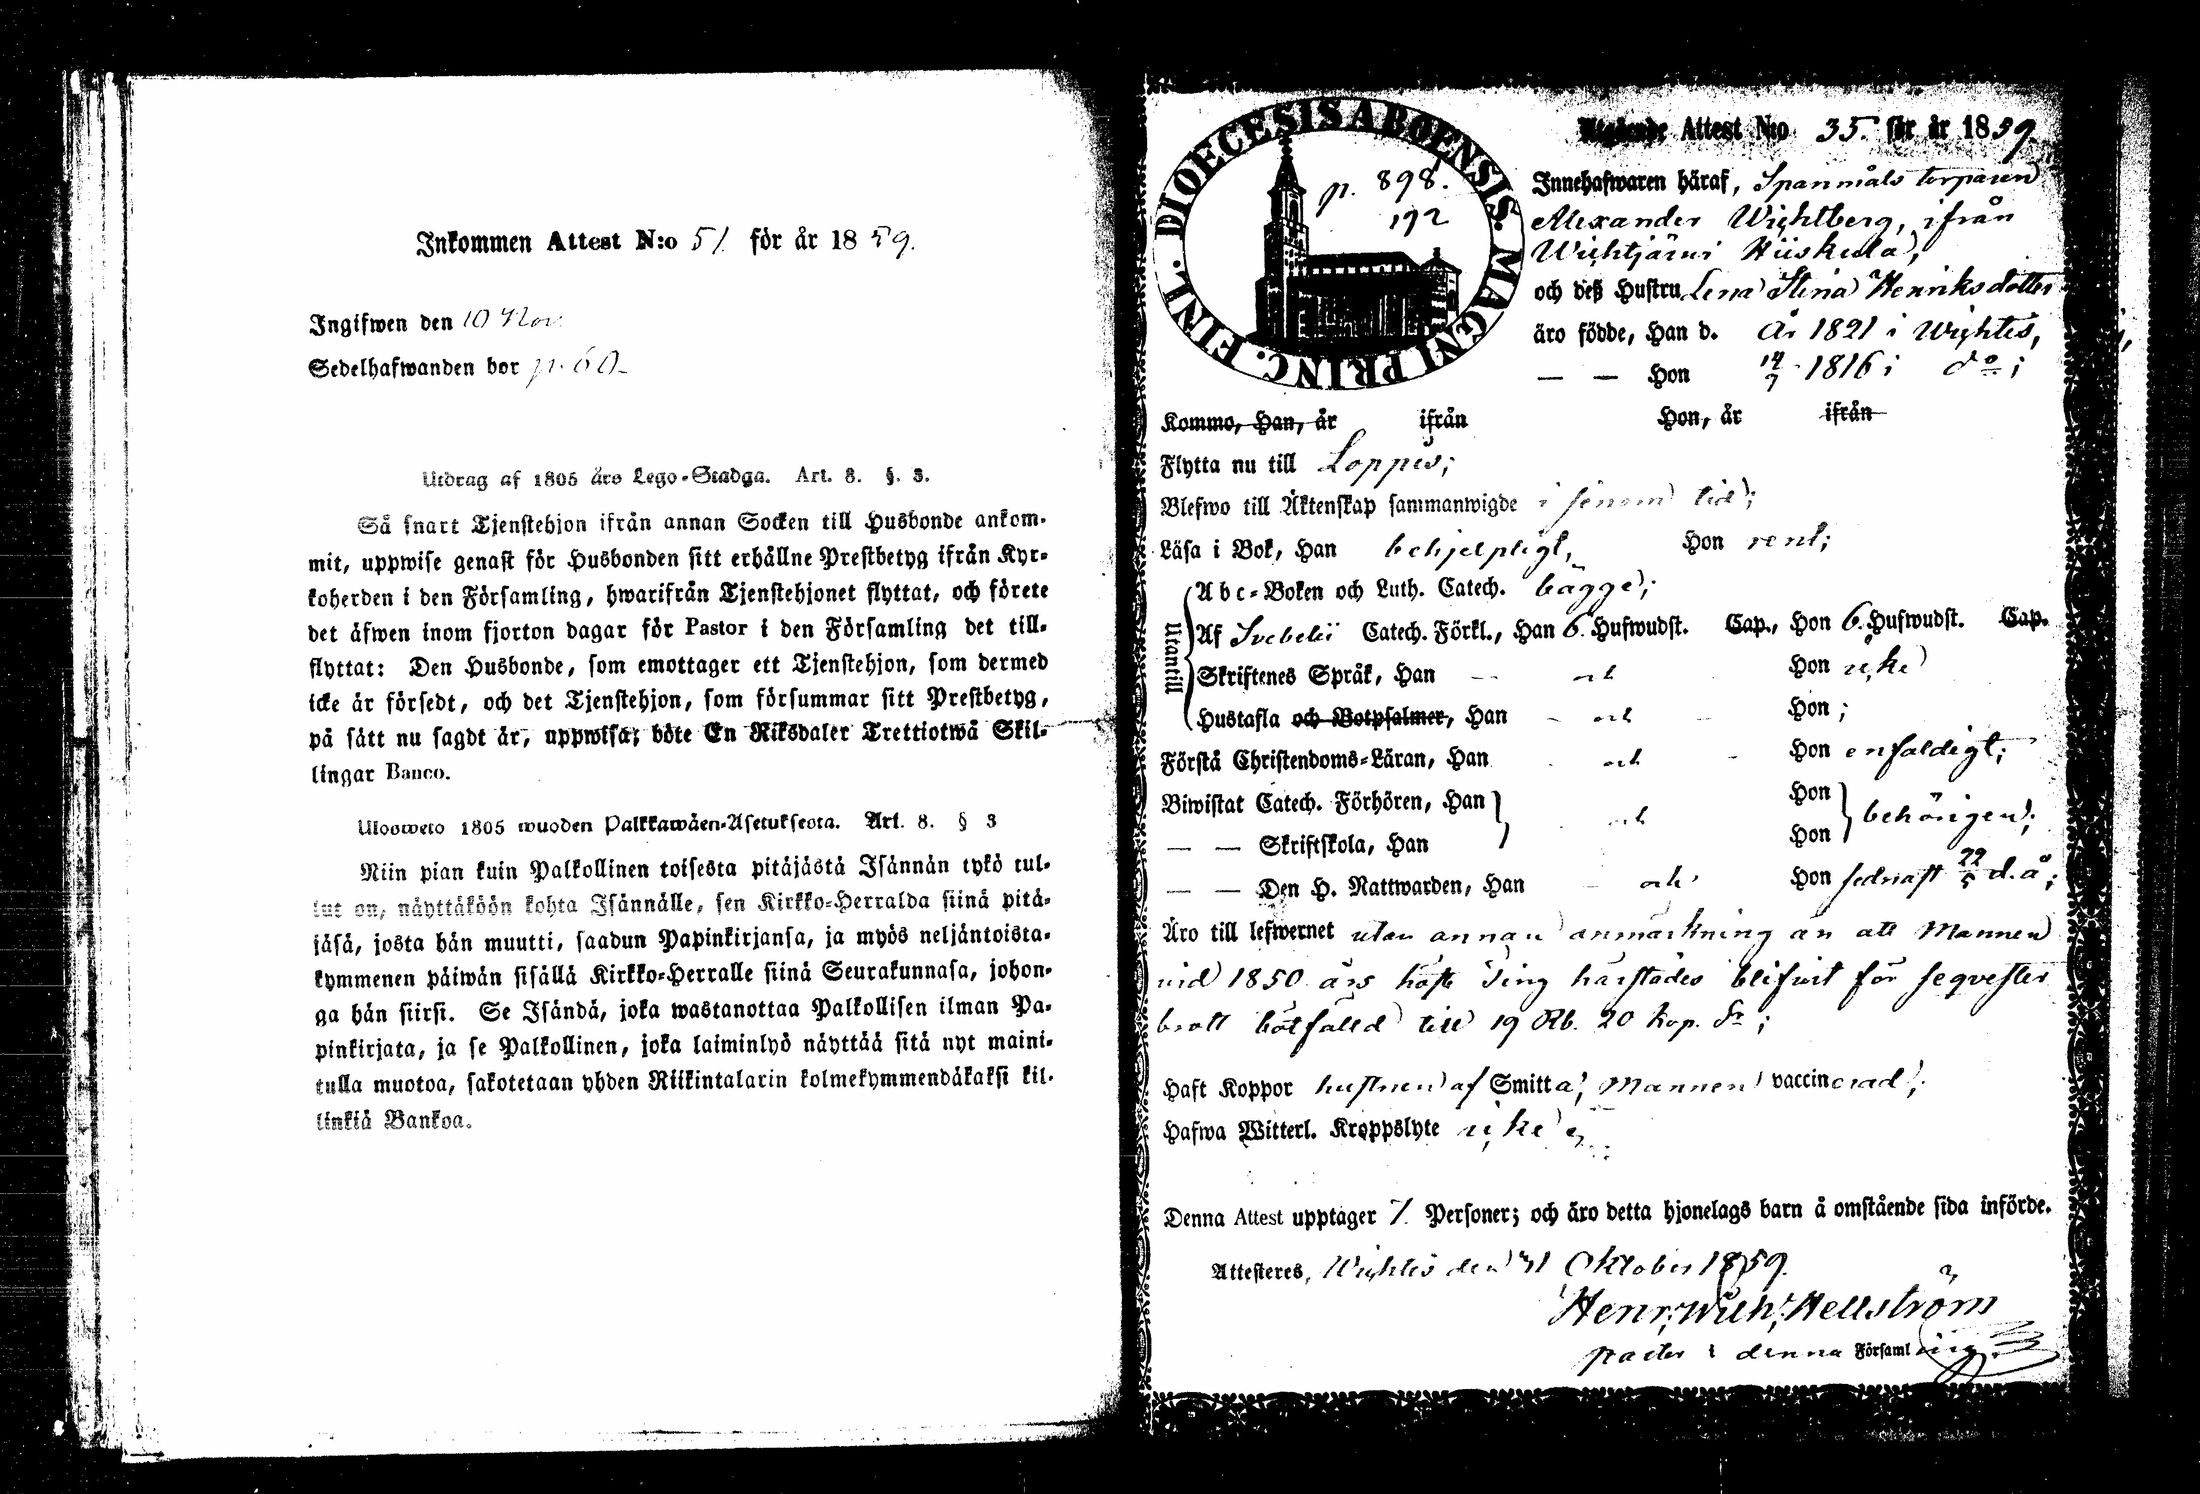 Inkommen Attest N:o 51. för år 1859.
Ingifwen den 10 Nov.
Sedelhafwanden bor p. 60.
Utdrag af 1805 års Lego-Stadga. Art. 8. §. 3.
Så snart Tjenstehjon ifrån annan Socken till Husbonde ankom-
mit, uppwise genast för Husbonden sitt erhållne Prestbetyg ifrån Kyr-
koherden i den Församling, hwarifrån Tjenstehjonet flyttat, och förete
det äfwen inom fjorton dagar för Pastor i den Församling det till-
flyttat: Den Husbonde, som emottager ett Tjenstehjon, som dermed
icke är försedt, och det Tjenstehjon, som försummar sitt Prestbetyg,
på sätt nu sagdt är, uppwisa; böte En Riksdaler Trettiotwå Skil-
lingar Banco.
Ulosweto 1805 wuoden Palkkawäen-Asetuksesta. Art. 8. § 3
Niin pian kuin Palkollinen toisesta pitäjästä Isännän tykö tul-
lut on, näyttäköön kohta Isännälle, sen Kirkko-Herralda siinä pitä-
jäsä, josta hän muutti, saadun Papinkirjansa, ja myös neljäntoista-
kymmenen päiwän sisällä Kirkko-Herralle siinä Seurakunnasa, johon-
ga hän siirsi. Se Isändä, joka wastanottaa Palkollisen ilman Pa-
pinkirjata, ja se Palkollinen, joka laiminlyö näyttää sitä nyt maini-
tulla muotoa, sakotetaan yhden Riikintalarin kolmekymmendäkaksi kil-
linkiä Bankoa.
DIOECESIS ABOENSIS. MAGNI PRINC. FINL.
p. 898.
192
Utgående Attest N:o 35. för år 1859
Innehafwaren häraf, Spanmåls torparen
Alexander Wichtberg, ifrån
Wichtjärvi Hiiskula,
och deß Hustru Lena Stina Henriksdotter
äro födde, Han d. År 1821 i Wichtis,
— — Hon 14/7 1816 i do;
Kommo, Han, år ifrån Hon, år ifrån
Flytta nu till Loppis;
Blefwo till Äktenskap sammanwigde i sinom tid;
Läsa i Bok, Han behjelpligt, Hon rent;
Utantill
Abc-Boken och Luth. Catech. bägge;
Af Svebelii Catech. Förkl., Han 6. Hufwudst. Cap., Hon 6. Hufwudst. Cap.
Skriftenes Språk, Han - och Hon icke
Hustafla och Botpsalmer, Han - och - Hon ;
Förstå Christendoms-Läran, Han - och - Hon enfaldigt;
Biwistat Catech. Förhören, Han och Hon behörigen;
— — Skriftskola, Han Hon
— — Den H. Nattwarden, Han - och Hon sednast 22/5 d. å;
Äro till lefwernet utan annan anmärkning än att Mannen
vid 1850 års höste Ting härstädes blifvit för seqvester
brott bötfälld till 19 Rb. 20 kop. Sr;
Haft Koppor hustrun af Smitta; Mannen vaccinerad;
Hafwa Witterl. Kroppslyte icke
Denna Attest upptager 7. Personer; och äro detta hjonelags barn å omstående sida införde.
Attesteres, Wichtis den 31 Oktober 1859.
Henr: Wilh: Hellström
pastor i denna Församling.